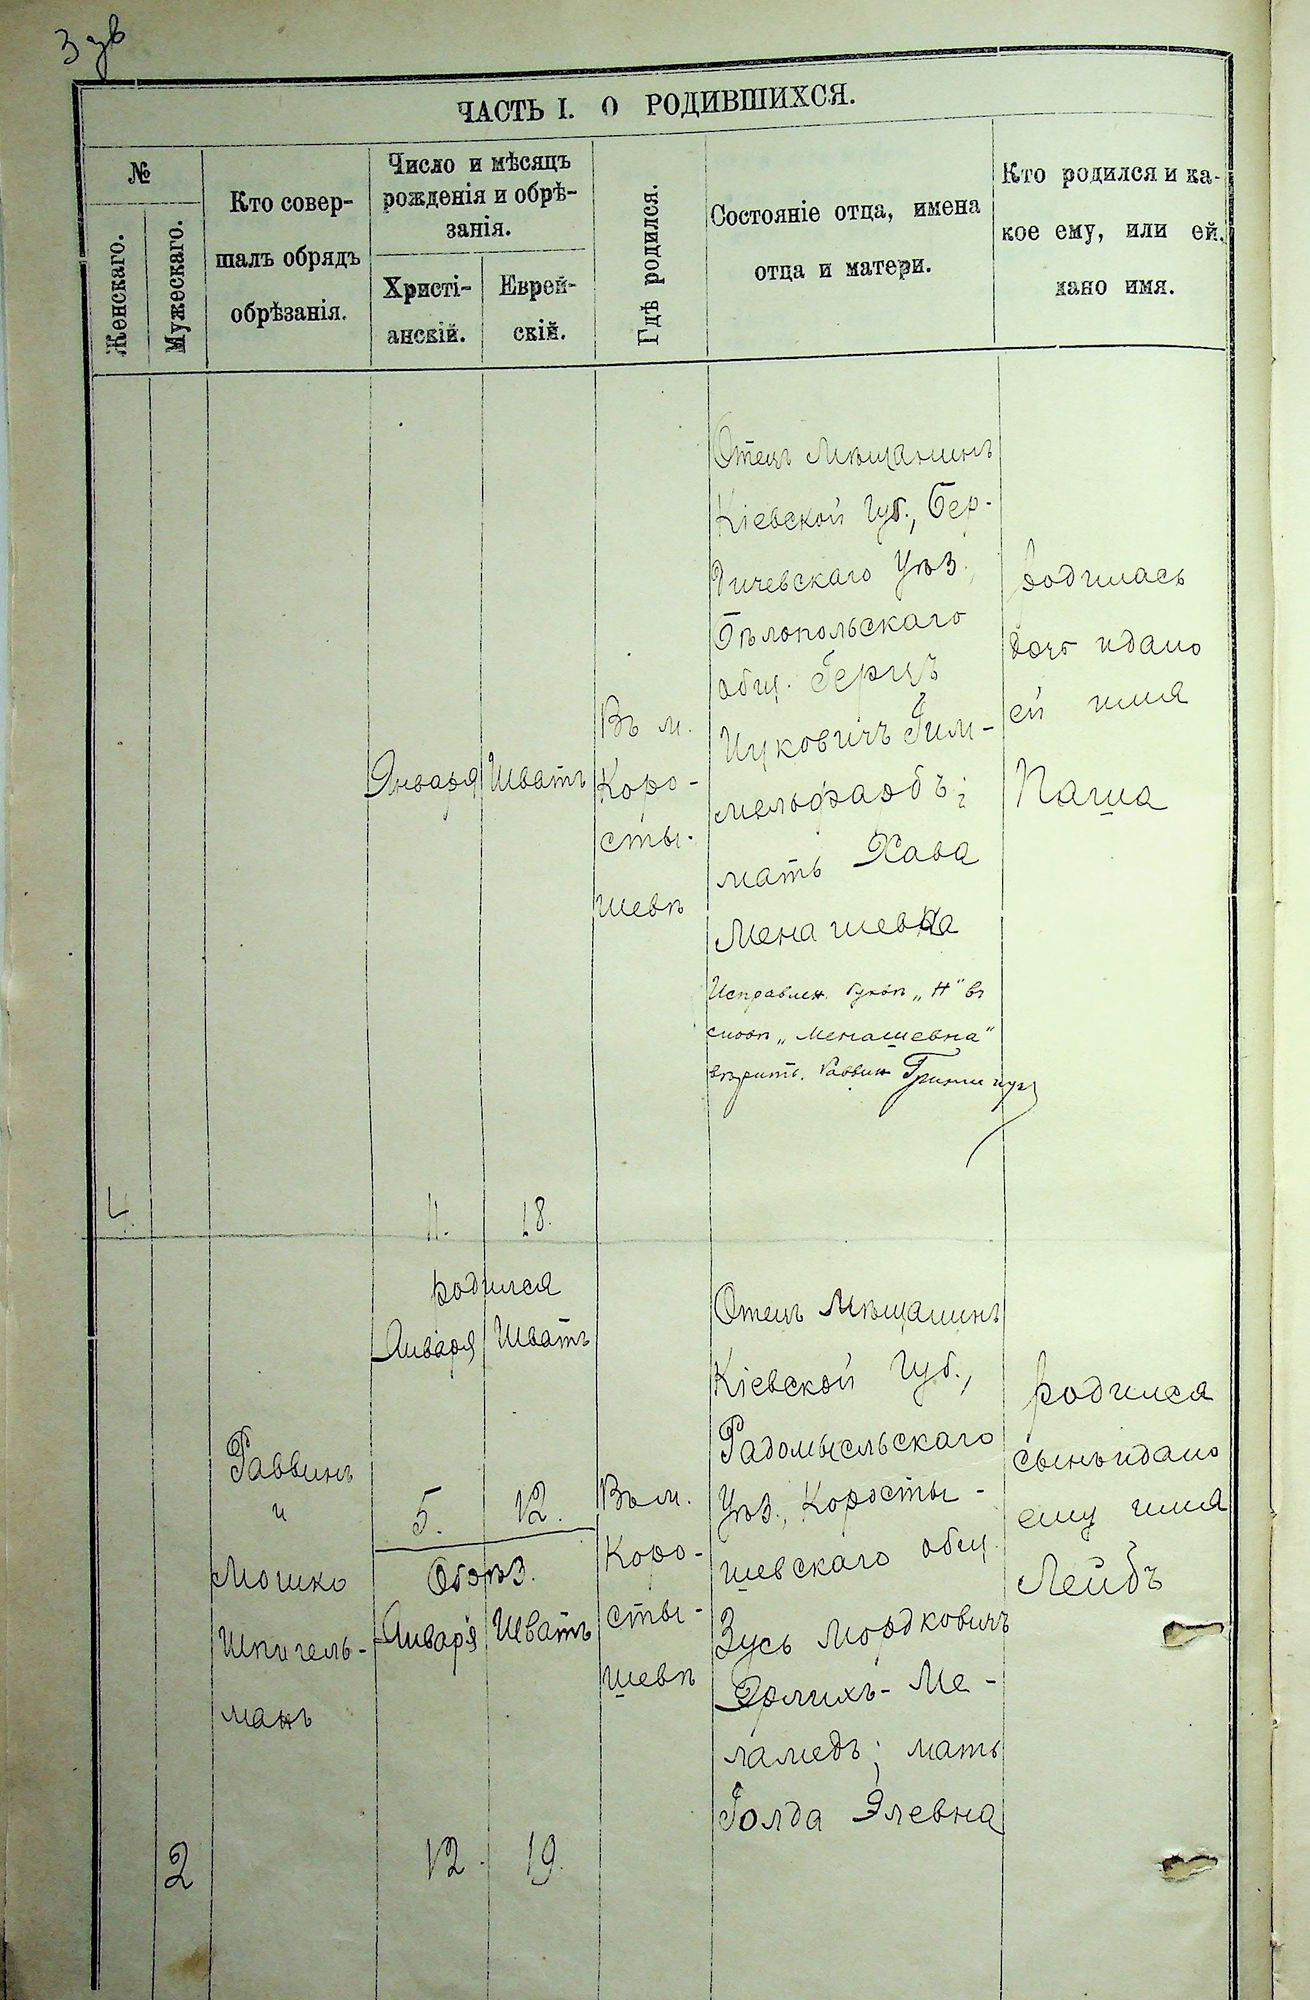 3 зв
ЧАСТЬ I. О РОДИВШИХСЯ.
№
Женскаго.
Мужескаго.
Кто совер-
шалъ обрядъ
обрѣзанія.
Число и мѣсяцъ
рожденія и обрѣ-
занія.
Христі-
анскій.
Еврей-
скій.
Гдѣ родился.
Состояніе отца, имена
отца и матери.
Кто родился и ка-
кое ему, или ей,
дано имя.
4.
Января
11.
Шватъ
18.
Въ м.
Коро-
сты-
шевѣ
Отецъ Мѣщанинъ
Кіевской Губ., Бер-
дичевскаго Уѣз.,
Бѣлопольскаго
общ. Герцъ
Ицковичъ Гим-
мельфарбъ;
мать Хава
Менашевна
Исправлен. букву „Н" въ
словѣ „Менашевна"
вѣрить. Раввин
родилась
дочь идано
ей имя
Паша
2
Раввинъ
и
Мошко
Шпигель-
манъ
родился
Января Шватъ
5. 12.
Обрѣз.
Января Шватъ
12. 19.
Въ м.
Коро-
сты-
шевѣ
Отецъ Мѣщанинъ
Кіевской Губ.,
Радомысльскаго
Уѣз., Коросты-
шевскаго общ.
Зусь Мордковичъ
Эрлихъ-Ме-
ламедъ; мать
Голда Элевна
родился
сынъ идано
ему имя
Лейбъ